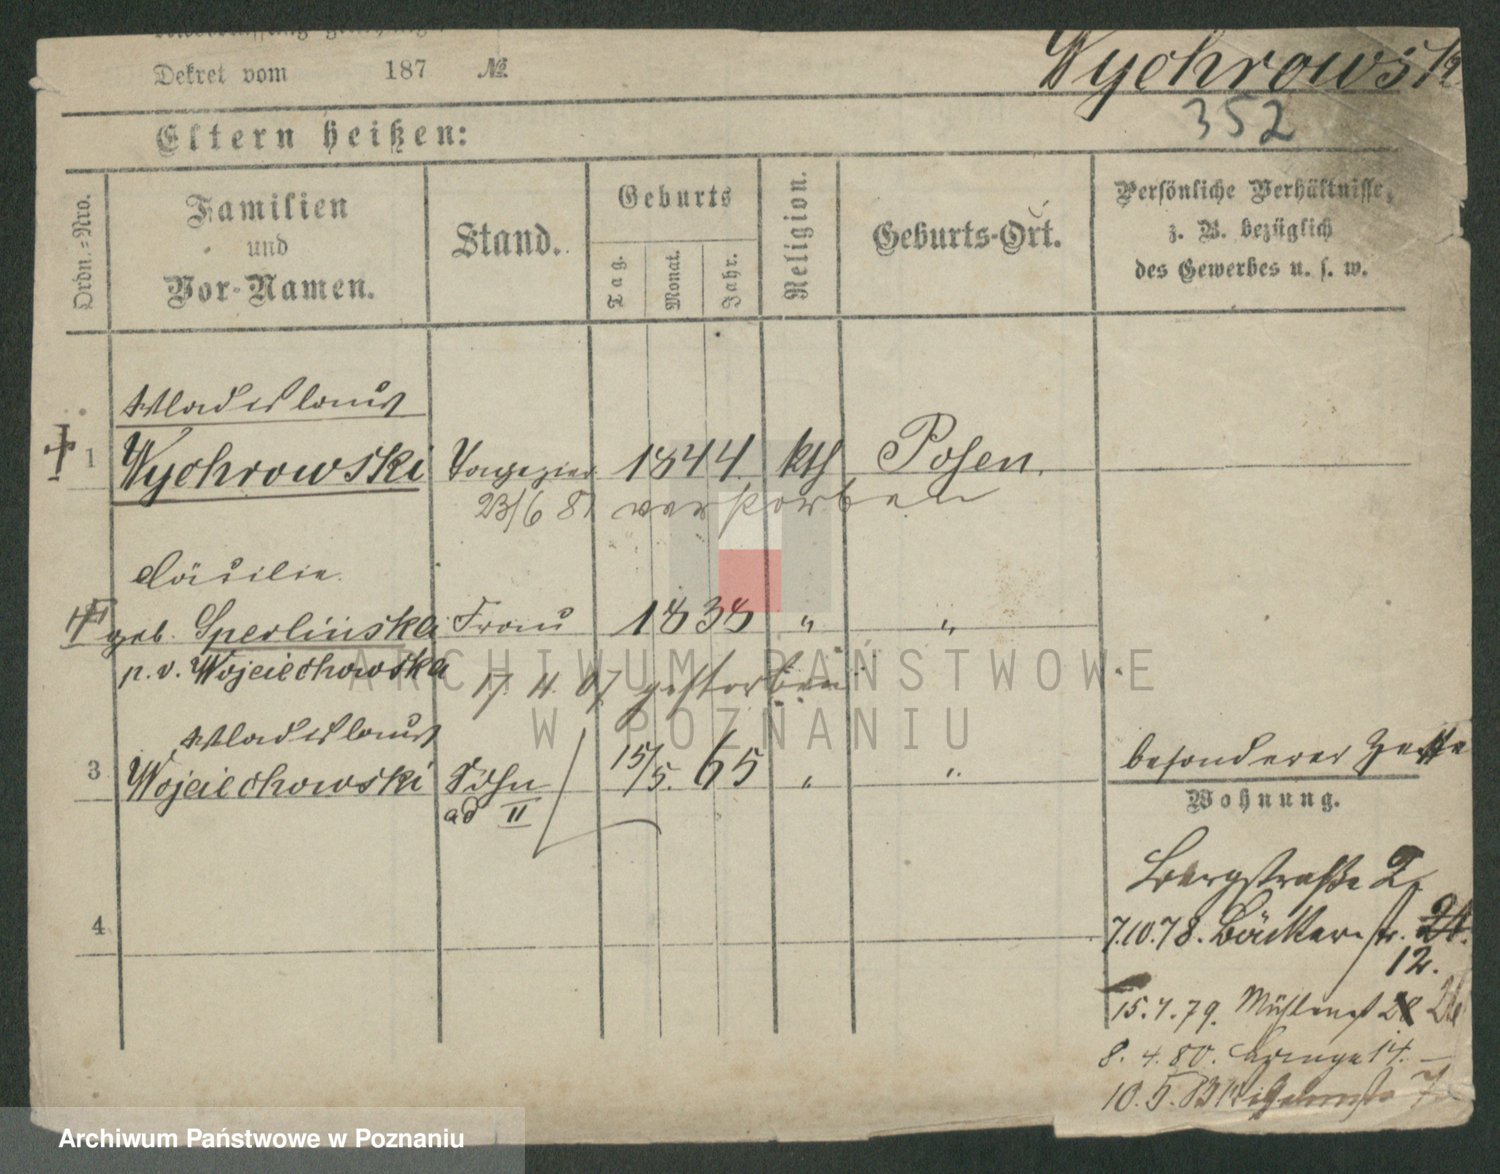 Dekret vom 187 №
Wychrowski
352
Eltern heißen:
Ordn.=Nro.
Familien
und
Vor-Namen.
Stand.
Geburts
Tag.
Monat.
Jahr.
Religion.
Geburts-Ort.
Persönliche Verhältnisse,
z. B. bezüglich
des Gewerbes u. s. w.
Wladislaus
1 Wychrowski Tapezier 1844. kth Posen.
23/6 81 verstorben
Cäcilie
geb. Sperlinska Frau 1838 " "
p. v. Wojciechowska
17. 4. 07 gestorben
Wladislaus
3 Wojciechowski Sohn 15/5. 65 " "
ad II
besonderer Zettel
Wohnung.
4
Bergstraße 2.
7.10.78. Bäckerstr. 24.
12.
15.7.79. Mühlenst 28 26
8. 4. 80. Lange 14.
10. 5.
ARCHIWUM PAŃSTWOWE
W POZNANIU
Archiwum Państwowe w Poznaniu